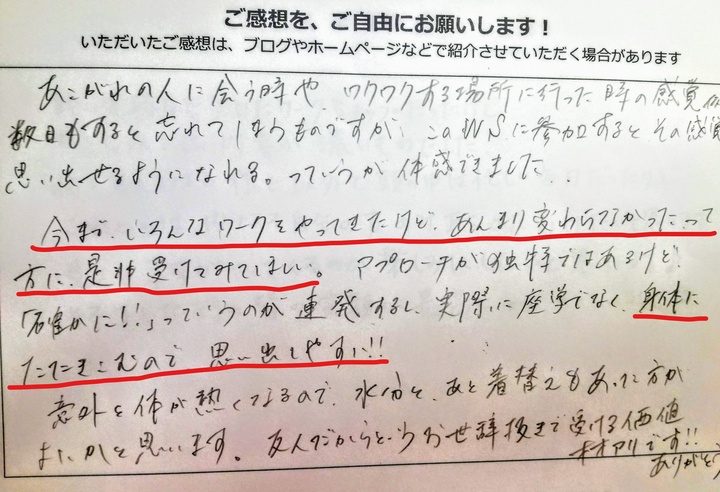 ご感想を、ご自由にお願いします！
いただいたご感想は、ブログやホームページなどで紹介させていただく場合があります
あこがれの人に会う時や、ワクワクする場所に行った時の感覚
数日もすると忘れてしまうものですが、このWSに参加するとその感覚
思い出せるようになれる。っていうか体感できました..
今まで、いろんなワークをやってきたけど、あんまり変わらなかったって
方に、是非受けてみてほしい。アプローチが独特ではあるけど、
「確かに!!」っていうのが連発するし、実際に座学でなく、身体に
たたきこむので、思い出しやすい!!
意外と体が熱くなるので、水分と、あと着替えもあった方が
よいかと思います。友人だからというお世辞抜きで受ける価値
大アリです!!
ありがとう